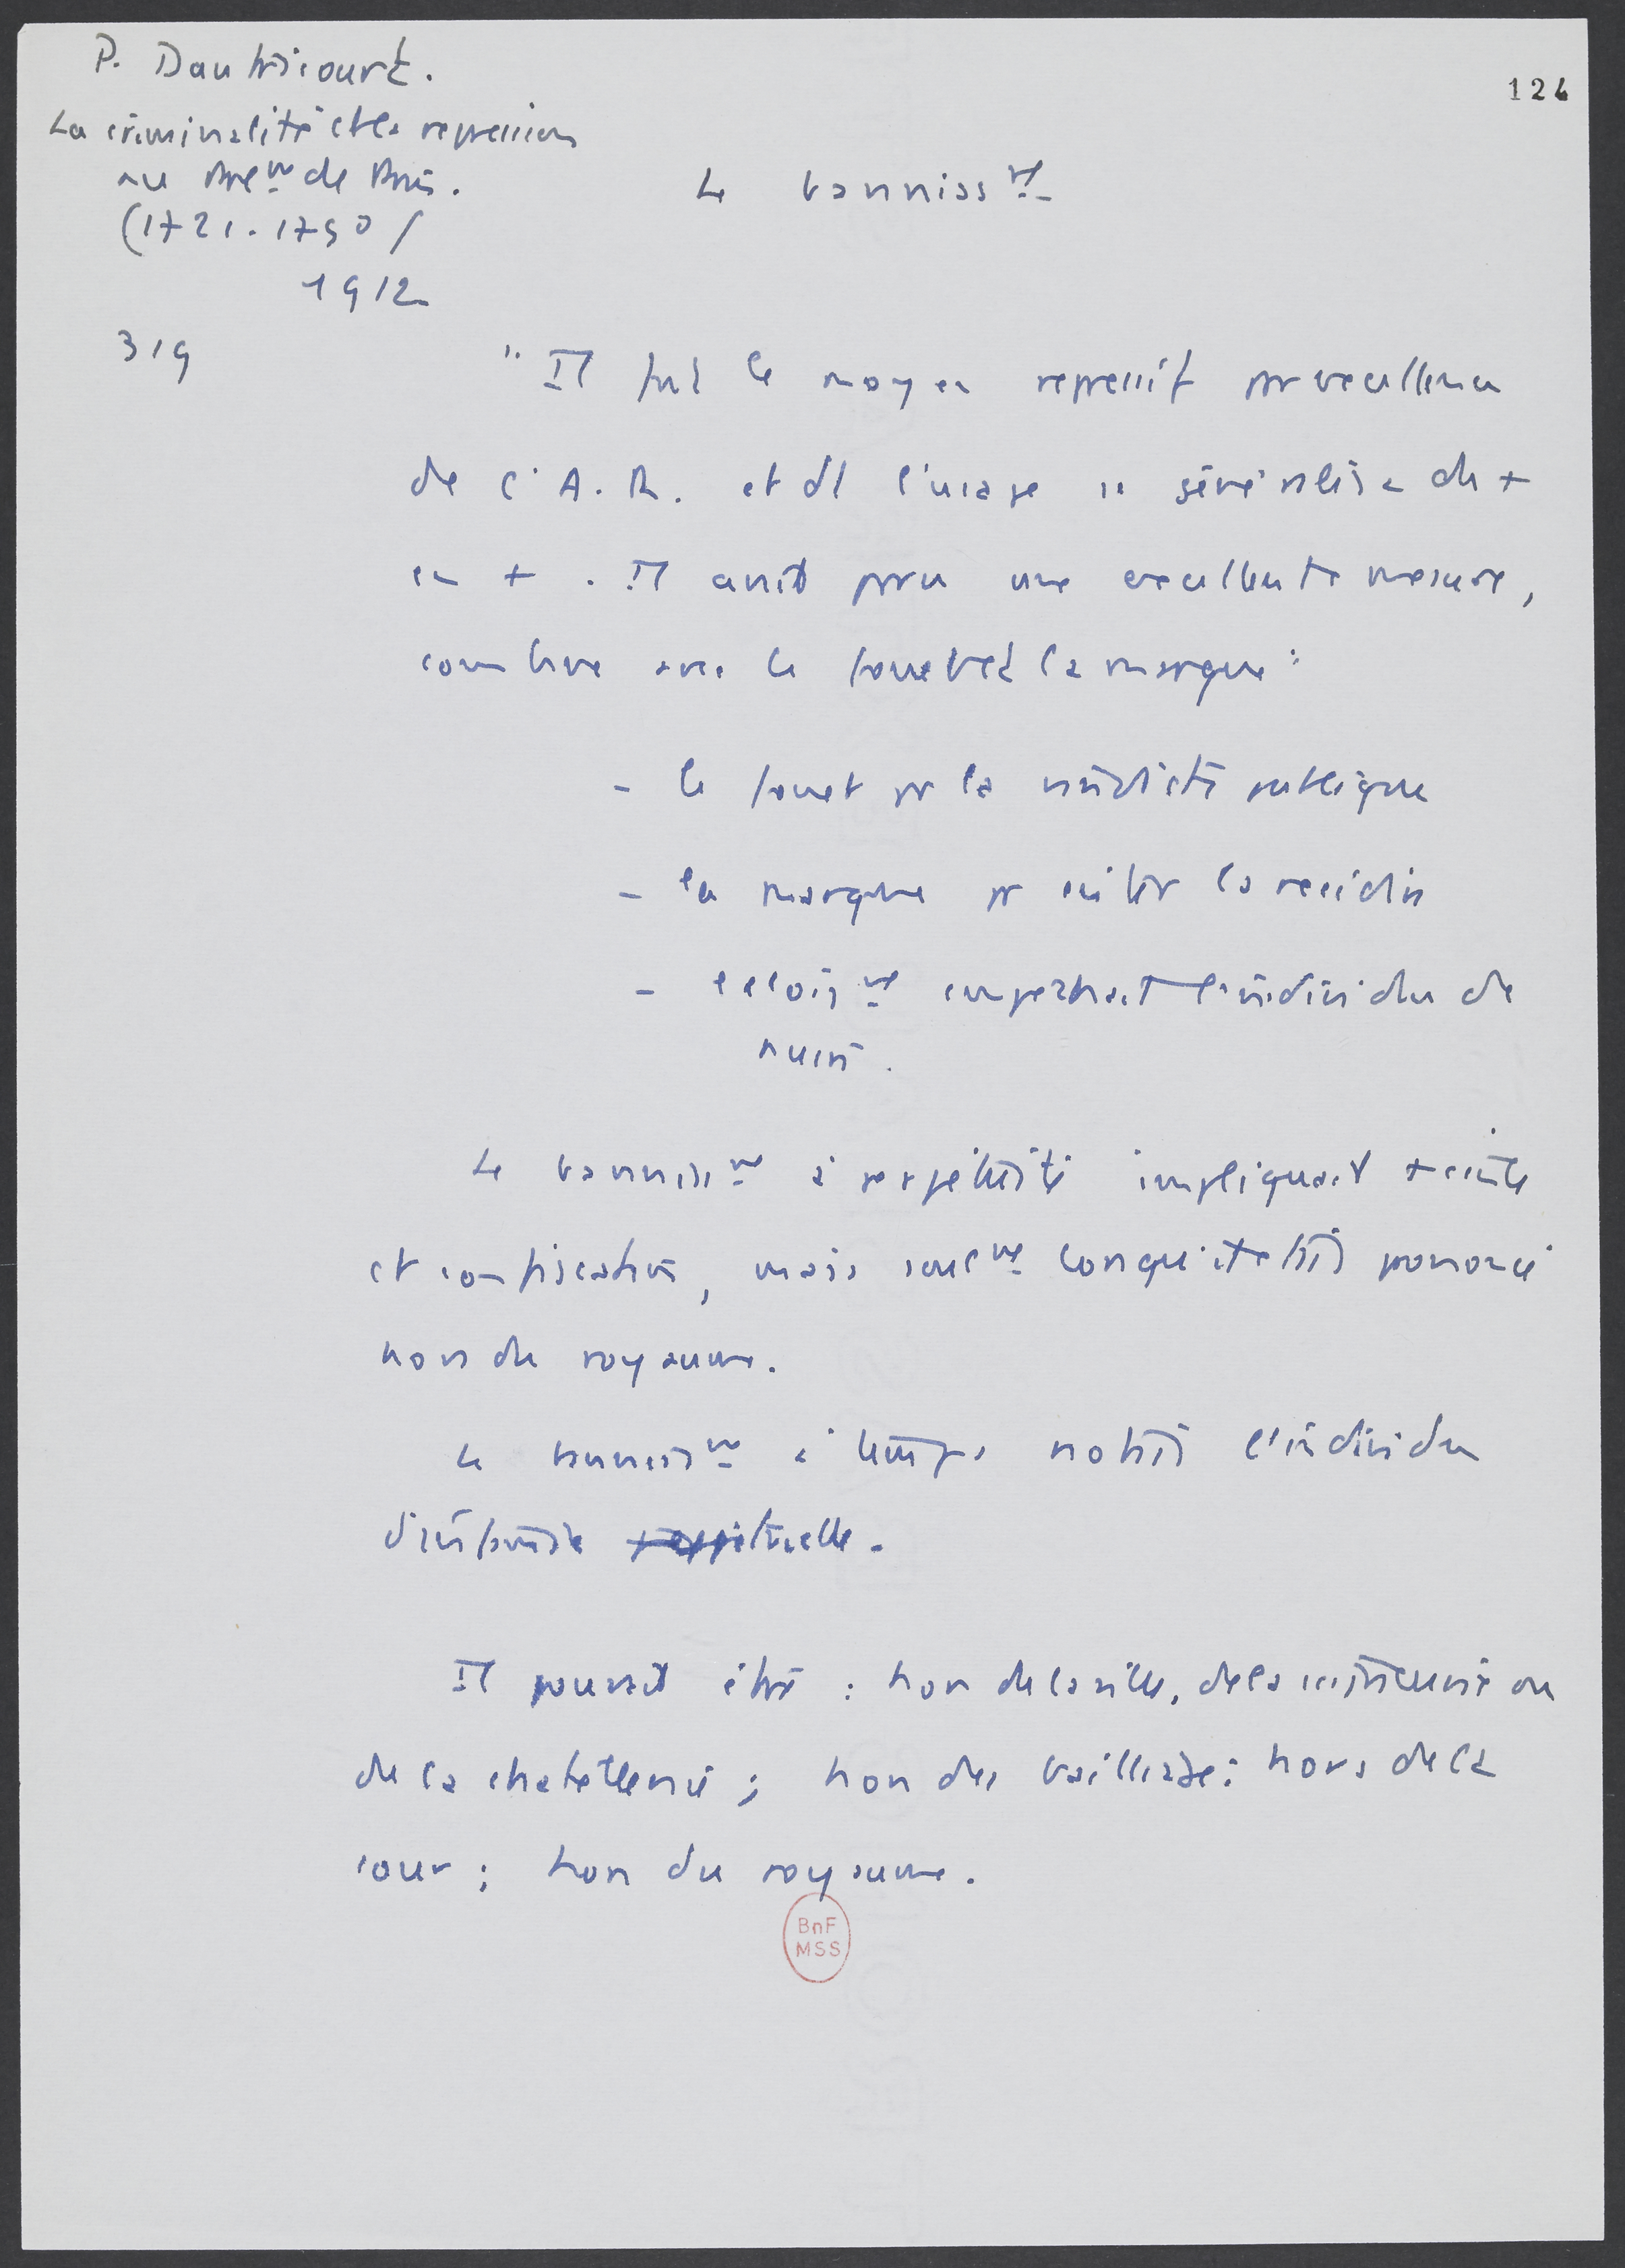 P. Dautricourt.
124
La criminalité et la repression
au Parl^mt de Paris.
(1721-1750)
1912
Le banniss^mt
319
"Il fut le moyen repressif par excellence
de l'A.R. et dt l'usage se généralisa de +
en + . Il avait paru une excellente mesure,
combiné avec le fouet et la marque :
- le fouet pr la vindicte publique
- la marque pr éviter la recidive
- l'éloign^mt empechait l'individu de
nuire.
Le banniss^mt à perpétuité impliquait
et confiscation, mais seul^mt lorsqu'il était prononcé
hors du royaume.
Le banniss^mt à temps notait l'individu
d'infamie perpétuelle.
Il pouvait être : hors de la ville, de la ou
de la chatellenie ; hors du bailliage ; hors de la
cour ; hors du royaume.
BnF
MSS